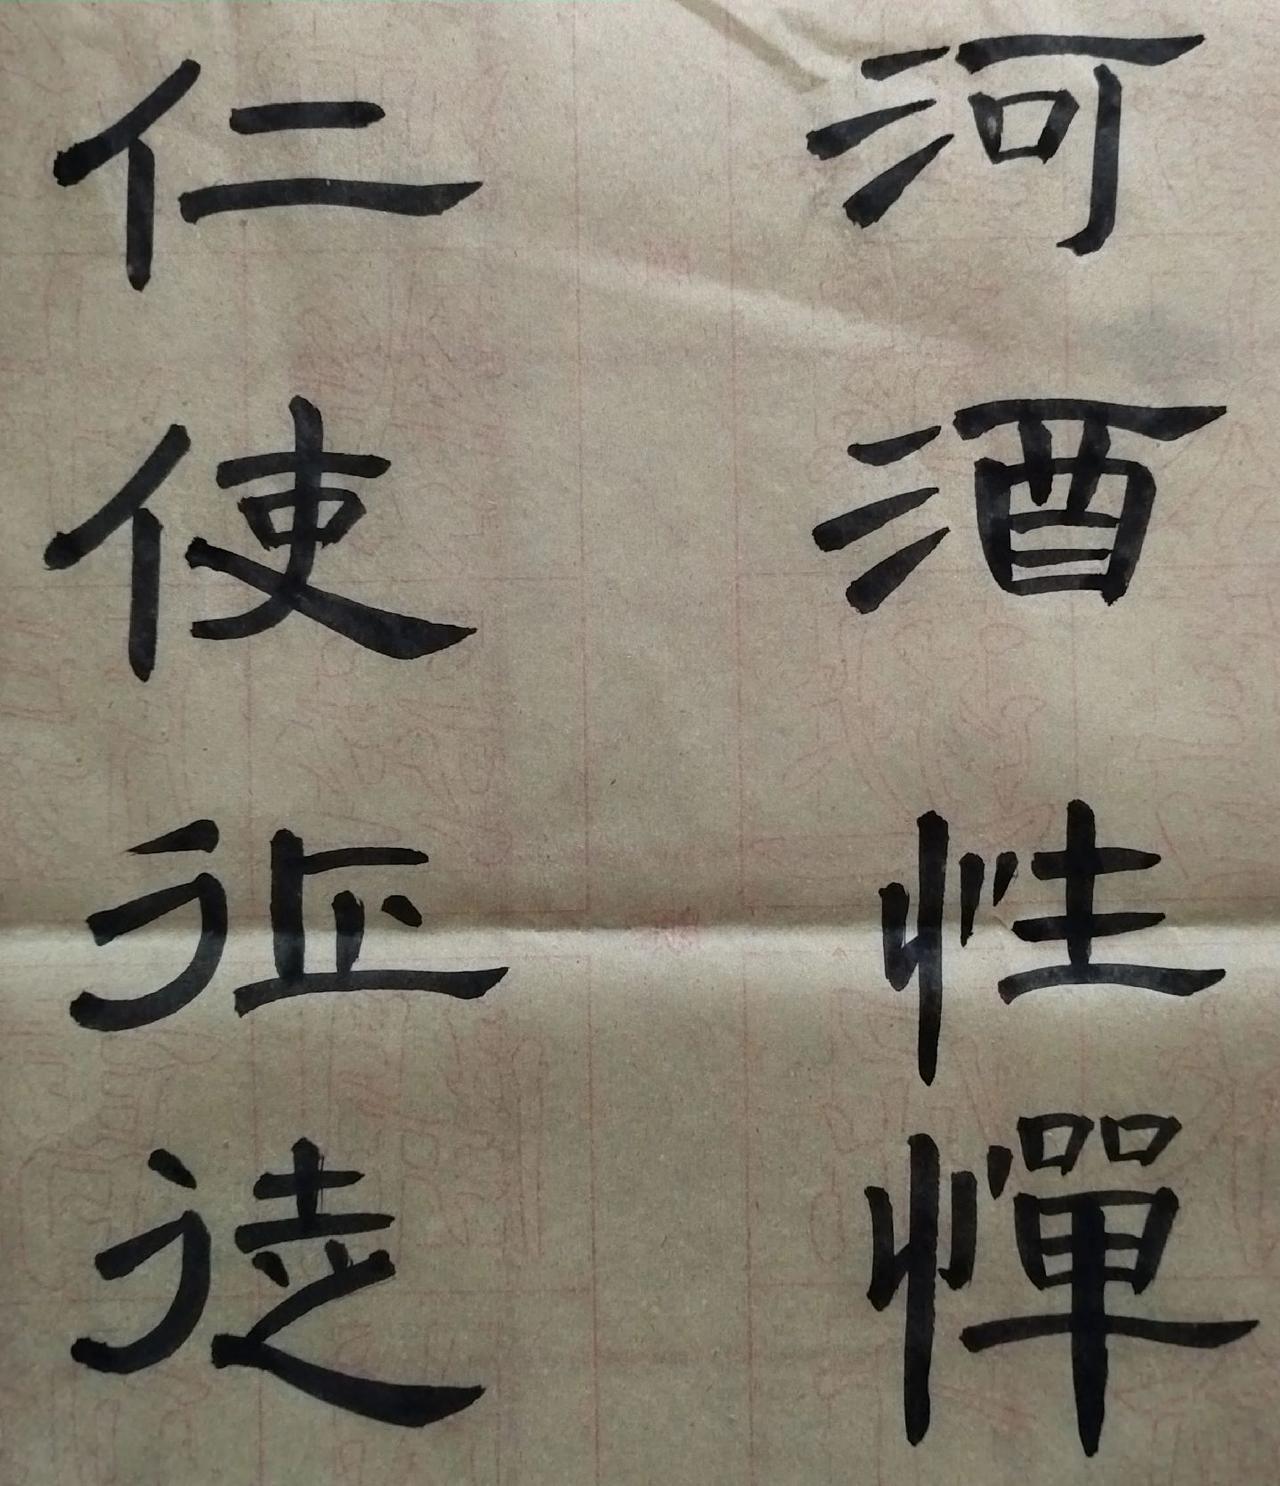 河酒性憚
仁使征徒